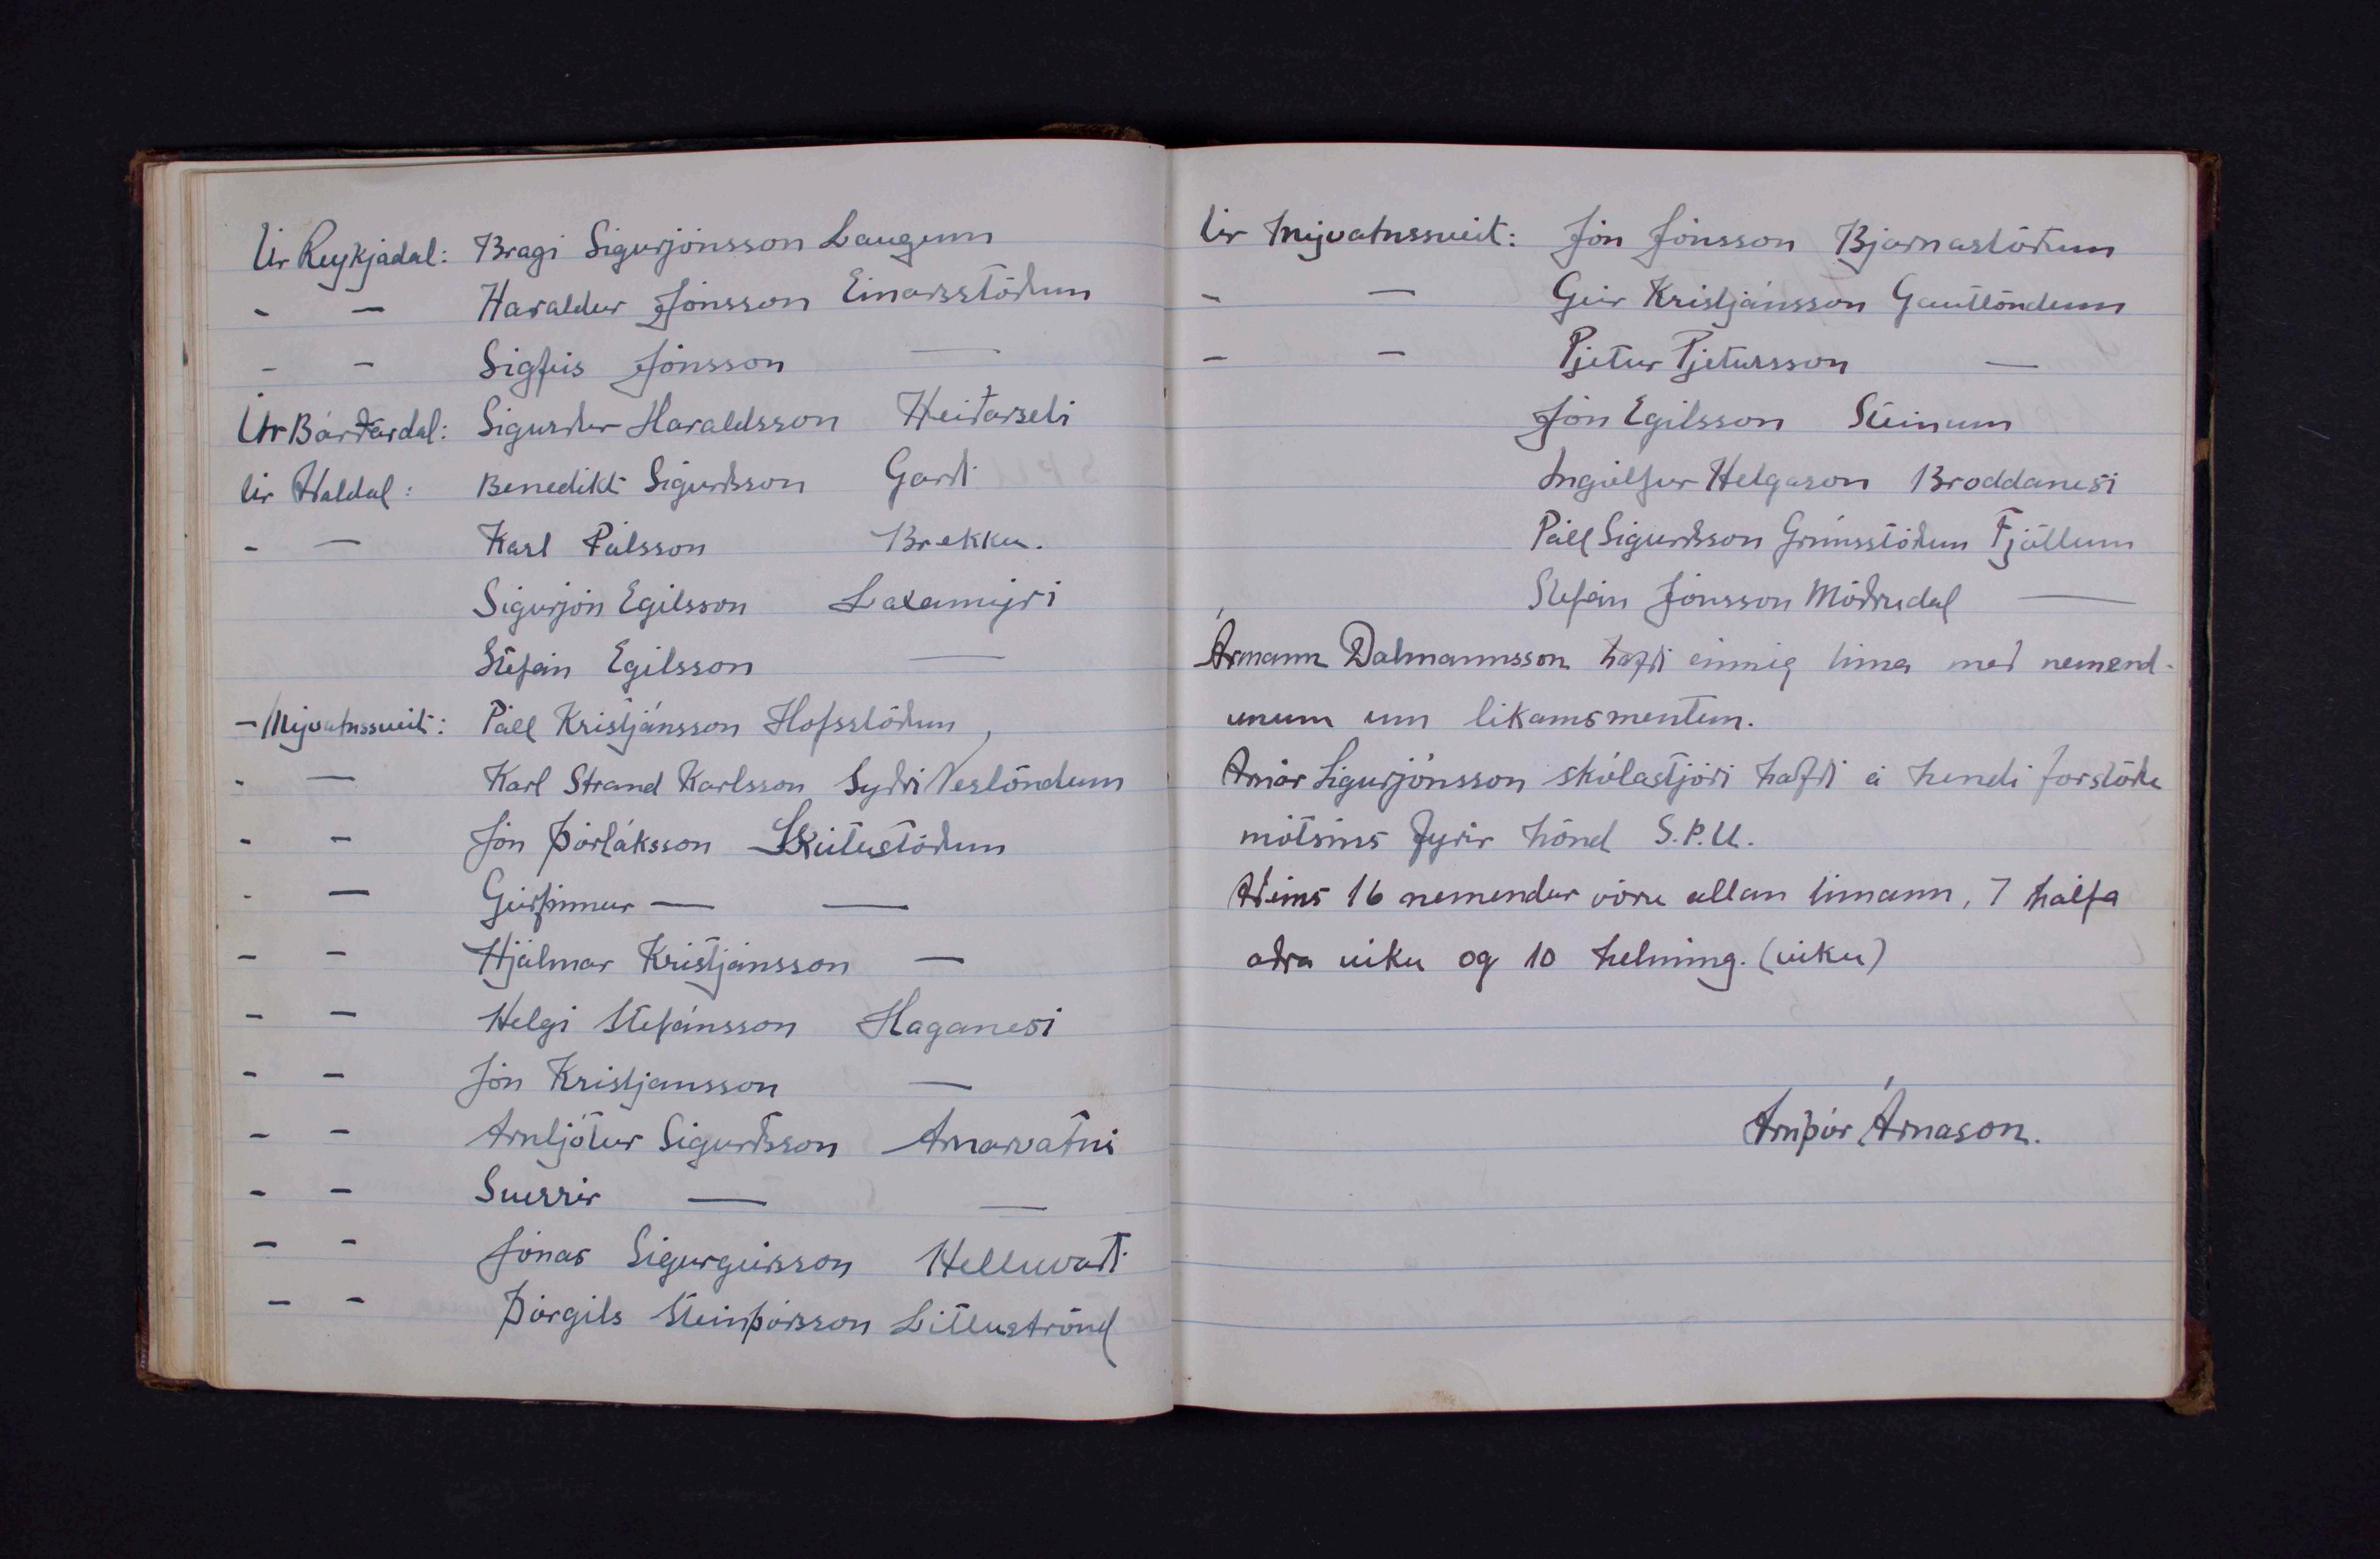 Úr Reykjadal: Bragi Sigurjónsson Laugum
- — Haraldur Jónsson Einarsstöðum
- - Sigfús Jónsson —
Úr Bárðardal: Sigurður Haraldsson Heiðarseli
Úr Aðaldal: Benedikt Sigurðsson Garði
- — Karl Pálsson Brekku.
Sigurjón Egilsson Laxamýri
Stefán Egilsson —
- Mývatnssveit: Páll Kristjánsson Hofsstöðum
- — Karl Strand Karlsson Syðri Neslöndum
- - Jón Þórláksson Skútustöðum
- — Geirfinnur — —
- - Hjálmar Kristjánsson —
- - Helgi Stefánsson Haganesi
- - Jón Kristjansson —
- - Arnljótur Sigurðsson Arnarvatni
- - Sverrir — —
- - Jónas Sigurgeirsson Helluvaði
- - Þórgils Steinþórsson Litluströnd
Úr Mývatnssveit: Jón Jónsson Bjarnastöðum
- — Geir Kristjánsson Gautlöndum
- - Pjetur Pjetursson —
Jón Egilsson Steinum
Ingólfur Helgason Broddanesi
Páll Sigurðsson Grímsstöðum Fjöllum
Stefán Jónsson Möðrudal —
Ármann Dalmannsson hafði einnig tíma með nemend-
unum um líkamsmentun.
Arnór Sigurjónsson skólastjóri hafði á hendi forstöðu
mótsins fyrir hönd S.Þ.U.
Aðeins 16 nemendur vóru allan tímann, 7 hálfa
aðra viku og 10 helming. (viku)
Arnþór Árnason.